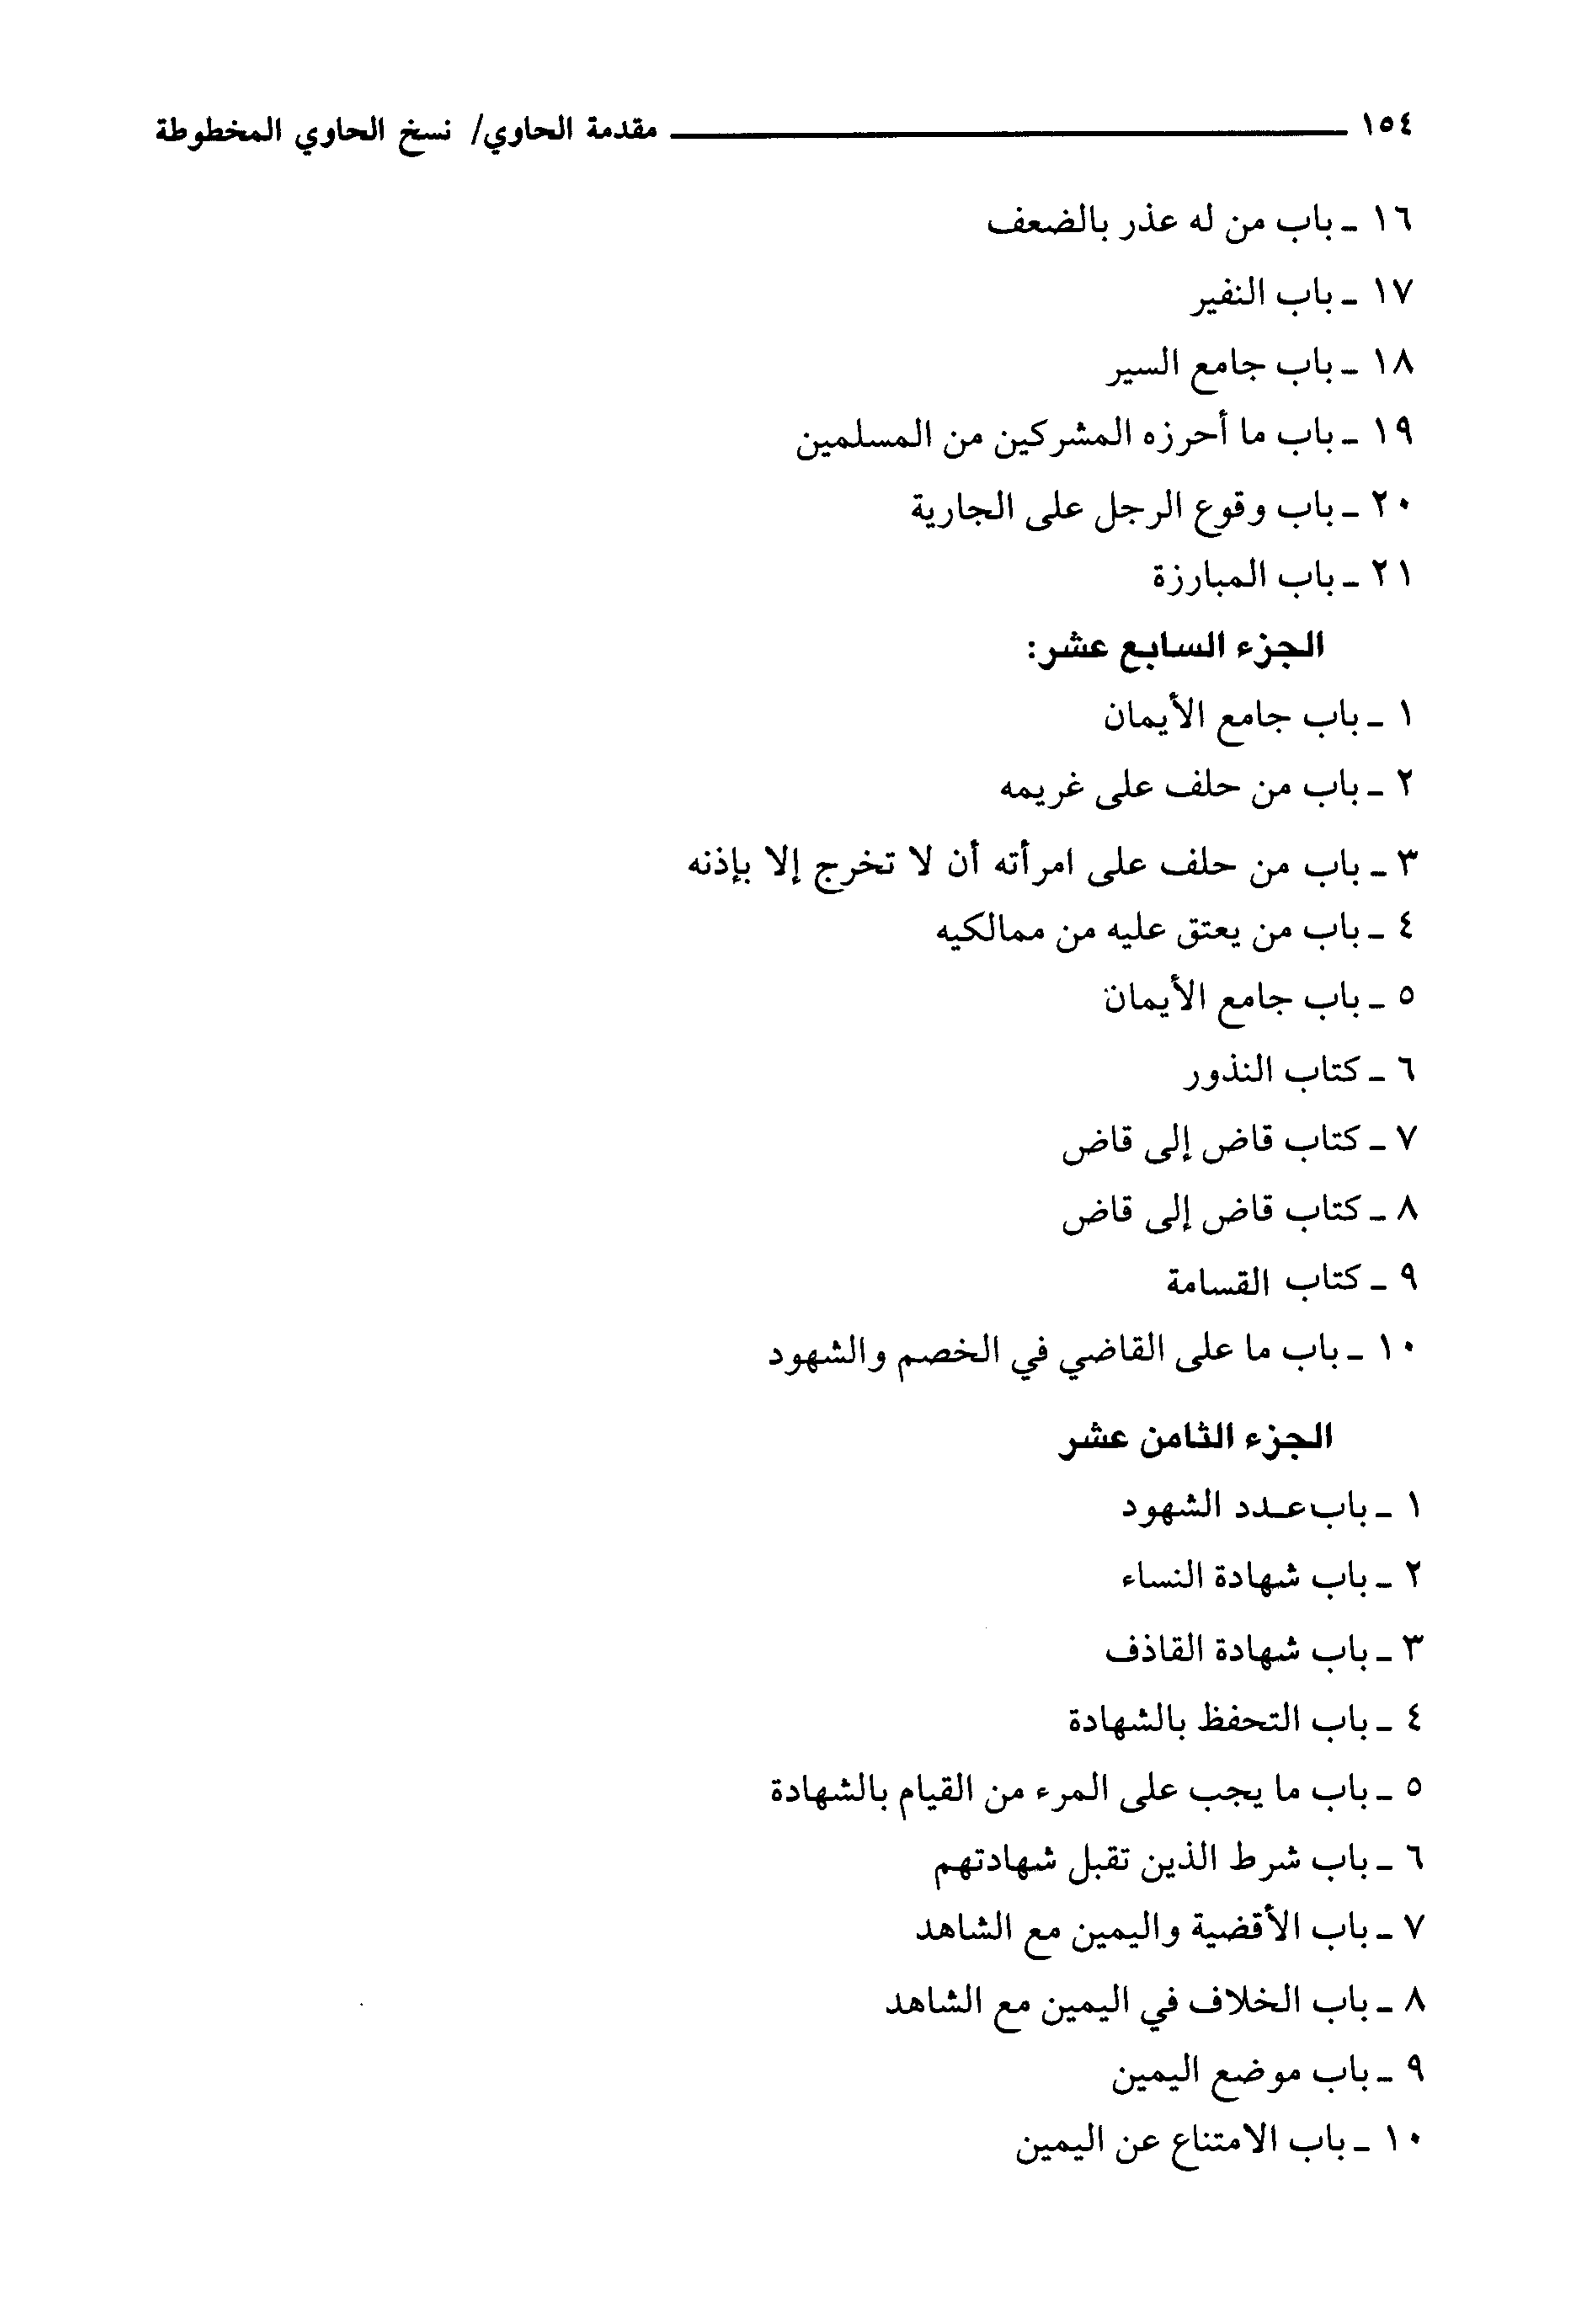 ١٥٤ مقدمة الحاوي/ نسخ الحاوي المخطوطة
١٦ - باب من له عذر بالضعف
١٧ - باب النفير
١٨ - باب جامع السير
١٩ - باب ما أحرزه المشركين من المسلمين
٢٠ - باب وقوع الرجل على الجارية
٢١ - باب المبارزة
الجزء السابع عشر:
١ - باب جامع الأيمان
٢ - باب من حلف على غريمه
٣ - باب من حلف على امرأته أن لا تخرج إلا بإذنه
٤ - باب من يعتق عليه من ممالكيه
٥ - باب جامع الأيمان
٦ - كتاب النذور
٧ - كتاب قاض إلى قاض
٨ - كتاب قاض إلى قاض
٩ - كتاب القسامة
١٠ - باب ما على القاضي في الخصم والشهود
الجزء الثامن عشر
١ - باب عدد الشهود
٢ - باب شهادة النساء
٣ - باب شهادة القاذف
٤ - باب التحفظ بالشهادة
٥ - باب ما يجب على المرء من القيام بالشهادة
٦ - باب شرط الذين تقبل شهادتهم
٧ - باب الأقضية واليمين مع الشاهد
٨ - باب الخلاف في اليمين مع الشاهد
٩ - باب موضع اليمين
١٠ - باب الامتناع عن اليمين